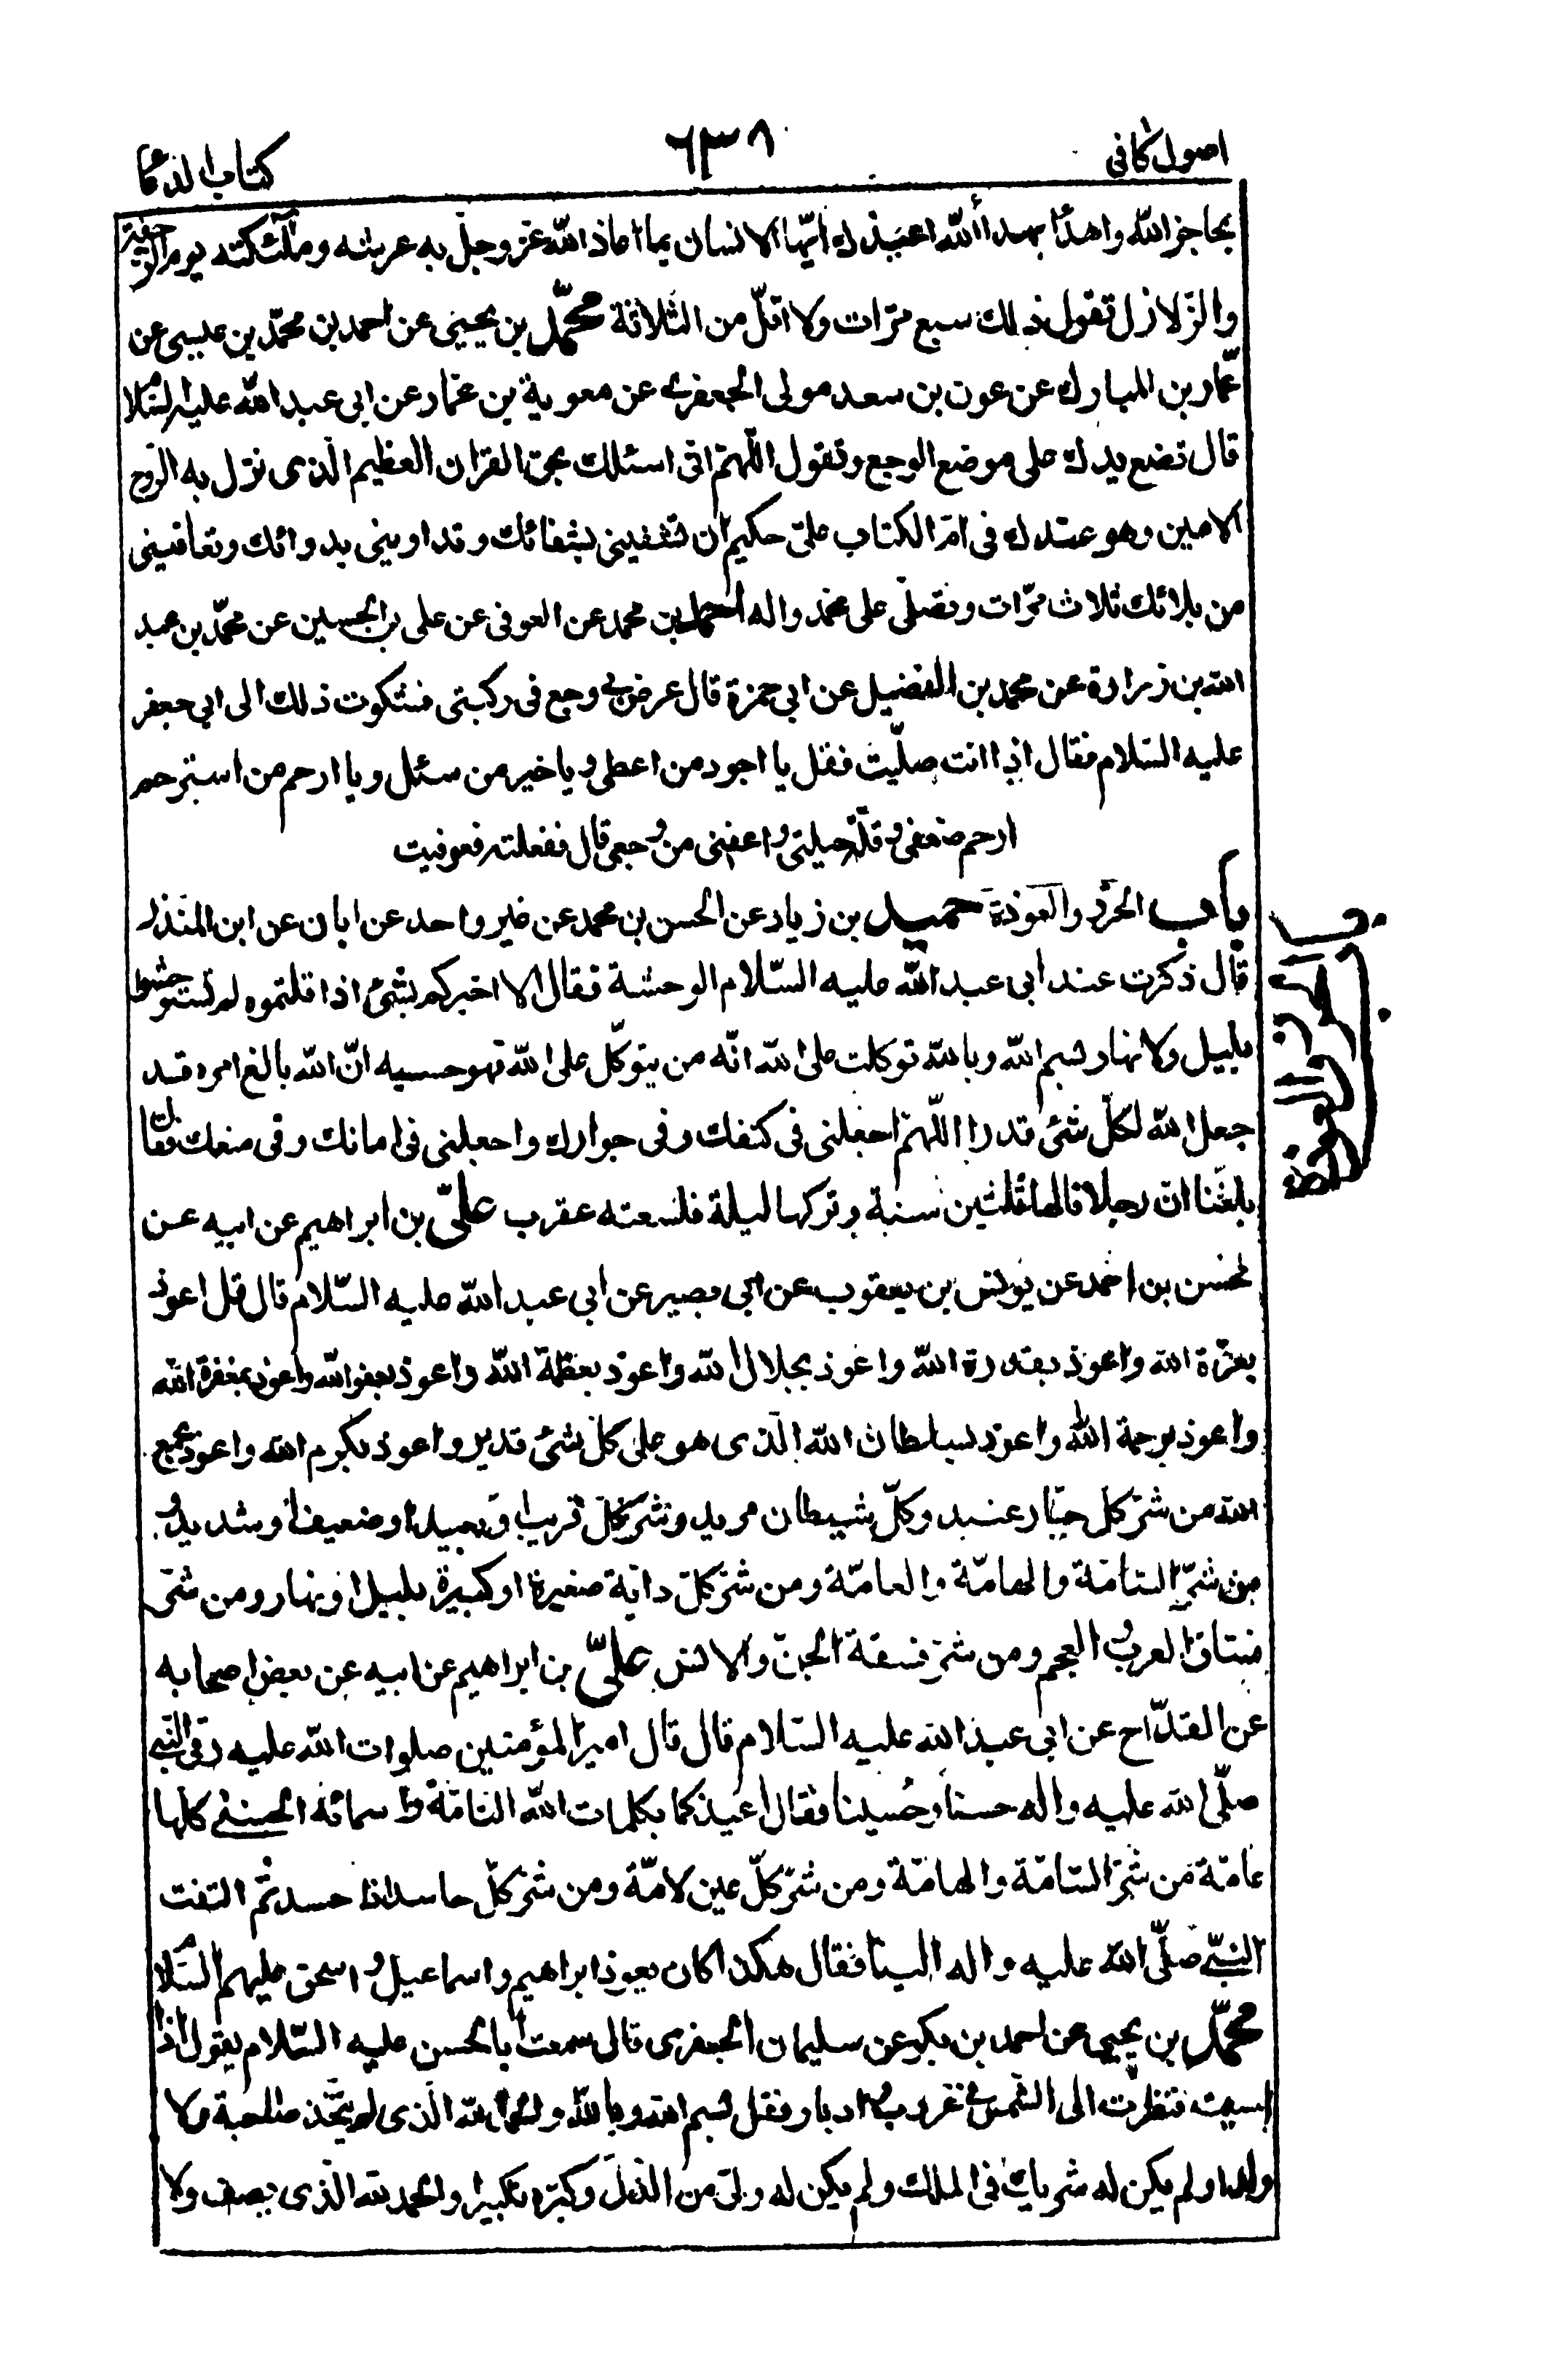 اصول كافى
٦٣٨
كتاب الدعا
بحاجز الله واهدأ بهدأ الله اعيذك ايّها الانسان بما اعاذ الله عزّ وجلّ به عرشه وملائكته يوم الرجفة
والزلازل تقول ذلك سبع مرّات ولا اقلّ من الثلاثة محمّد بن يحيى عن احمد بن محمّد بن عيسى عن
عمّار بن المبارك عن عون بن سعد مولى الجعفرى عن معوية بن عمّار عن ابى عبد الله عليه السّلام
قال تضع يدك على موضع الوجع وتقول اللّهمّ انى اسئلك بحق القران العظيم الذى نزل به الروح
الامين وهو عندك فى امّ الكتاب علىّ حكيم ان تشفينى بشفائك وتداوينى بدوائك وتعافينى
من بلائك ثلاث مرّات وتصلّى على محمّد واله احمد بن محمد عن العوفى عن على بن الحسين عن محمّد بن عبد
الله بن زرارة عن محمد بن الفضيل عن ابى حمزة قال عرض بى وجع فى ركبتى فشكوت ذلك الى ابى جعفر
عليه السّلام فقال اذا انت صلّيت فقل يا اجود من اعطى ويا خير من سئل ويا ارحم من استرحم
ارحم ضعفى وقلّة حيلتى واعفنى من وجعى قال ففعلته فعوفيت
باب الحرز والعوذة حميد بن زياد عن الحسن بن محمد عن غير واحد عن ابان عن ابن المنذر
قال ذكرت عند ابى عبد الله عليه السّلام الوحشة فقال الا اخبركم بشئ اذا قلتموه لم تستوحشوا
بليل ولا نهار بسم الله وبالله توكلت على الله انّه من يتوكّل على الله فهو حسبه انّ الله بالغ امره قد
جعل الله لكلّ شئ قدرا اللّهمّ اجعلنى فى كنفك وفى جوارك واجعلنى فى امانك وفى منعك فقال
بلغنا ان رجلا قالها ثلثين سنة وتركها ليلة فلسعته عقرب علىّ بن ابراهيم عن ابيه عن
محسن بن احمد عن يونس بن يعقوب عن ابى بصير عن ابى عبد الله عليه السّلام قال قل اعوذ
بعزّة الله واعوذ بقدرة الله واعوذ بجلال الله واعوذ بعظمة الله واعوذ بعفو الله واعوذ بمغفرة الله
واعوذ برحمة الله واعوذ بسلطان الله الّذى هو على كلّ شئ قدير واعوذ بكرم الله واعوذ بجمع
الله من شرّ كلّ جبّار عنيد وكلّ شيطان مريد وشرّ كلّ قريب او بعيد او ضعيف او شديد و
من شرّ السّامّة والهامّة والعامّة ومن شرّ كلّ دابّة صغيرة او كبيرة بليل او نهار ومن شرّ
فسّاق العرب والعجم ومن شرّ فسقة الجنّ والانس علىّ بن ابراهيم عن ابيه عن بعض اصحابه
عن القدّاح عن ابى عبد الله عليه السّلام قال قال امير المؤمنين صلوات الله عليه رقى النّبى
صلّى الله عليه واله حسنا وحسينا فقال اعيذكما بكلمات الله التامّة واسمائه الحسنى كلّها
عامّة من شرّ السّامّة والهامّة ومن شرّ كلّ عين لامّة ومن شرّ كلّ حاسد اذا حسد ثمّ التفت
النبىّ صلّى الله عليه واله الينا فقال هكذا كان يعوذ ابراهيم واسماعيل و اسحق عليهم السّلام
محمّد بن يحيى عن احمد بن بكر عن سليمان الجعفرى قال سمعت ابا الحسن عليه السّلام يقول اذا
امسيت فنظرت الى الشمس فى غروب وادبار فقل بسم الله وبالله والحمد لله الّذى لم يتّخذ صاحبة ولا
ولدا ولم يكن له شريك فى الملك ولم يكن له ولىّ من الذلّ وكبّره تكبيرا والحمد لله الّذى يصف ولا